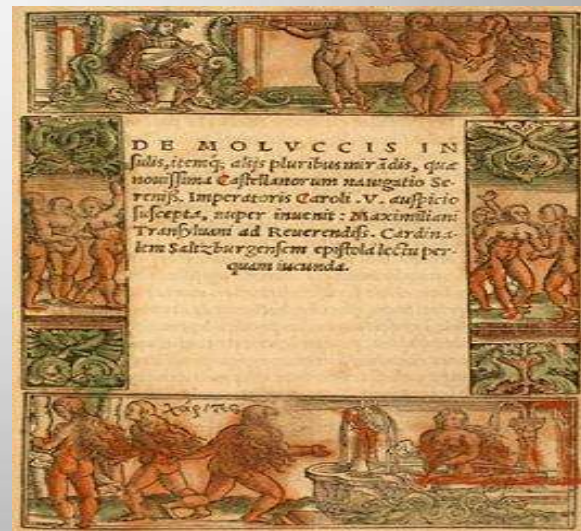 DE MOLVCCIS IN
ſulis, itemq; alijs pluribus mirãdis, quæ
nouiſſima Caſtellanorum nauigatio Se-
reniſſ. Imperatoris Caroli .V. auſpicio
ſuſcepta, nuper inuenit: Maximiliani
Tranſyluani ad Reuerendiſſ. Cardina-
lem Saltzburgenſem epiſtola lectu per-
quam iucunda.